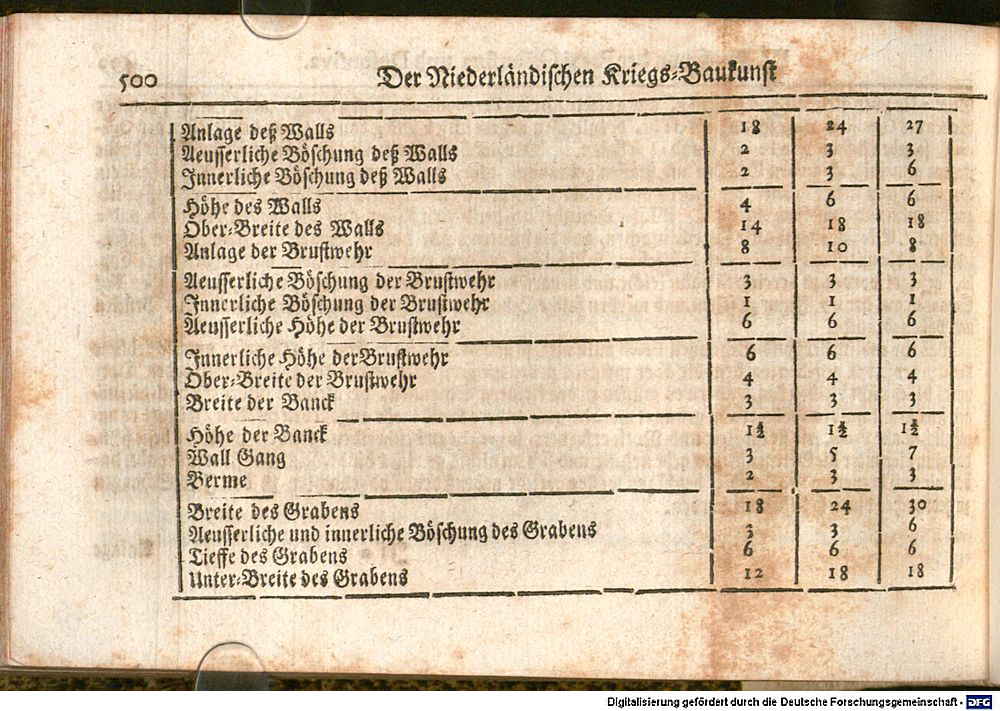 500 Der Niederländischen Kriegs-Baukunst
Anlage deß Walls 18 24 27
Aeusserliche Böschung deß Walls 2 3 3
Innerliche Böschung deß Walls 2 3 6
Höhe des Walls 4 6 6
Ober-Breite des Walls 14 18 18
Anlage der Brustwehr 8 10 8
Aeusserliche Böschung der Brustwehr 3 3 3
Innerliche Böschung der Brustwehr 1 1 1
Aeusserliche Höhe der Brustwehr 6 6 6
Innerliche Höhe der Brustwehr 6 6 6
Ober-Breite der Brustwehr 4 4 4
Breite der Banck 3 3 3
Höhe der Banck 1½ 1½ 1½
Wall Gang 3 5 7
Berme 2 3 3
Breite des Grabens 18 24 30
Aeusserliche und innerliche Böschung des Grabens 3 3 6
Tieffe des Grabens 6 6 6
Unter-Breite des Grabens 12 18 18
Digitalisierung gefördert durch die Deutsche Forschungsgemeinschaft - DFG